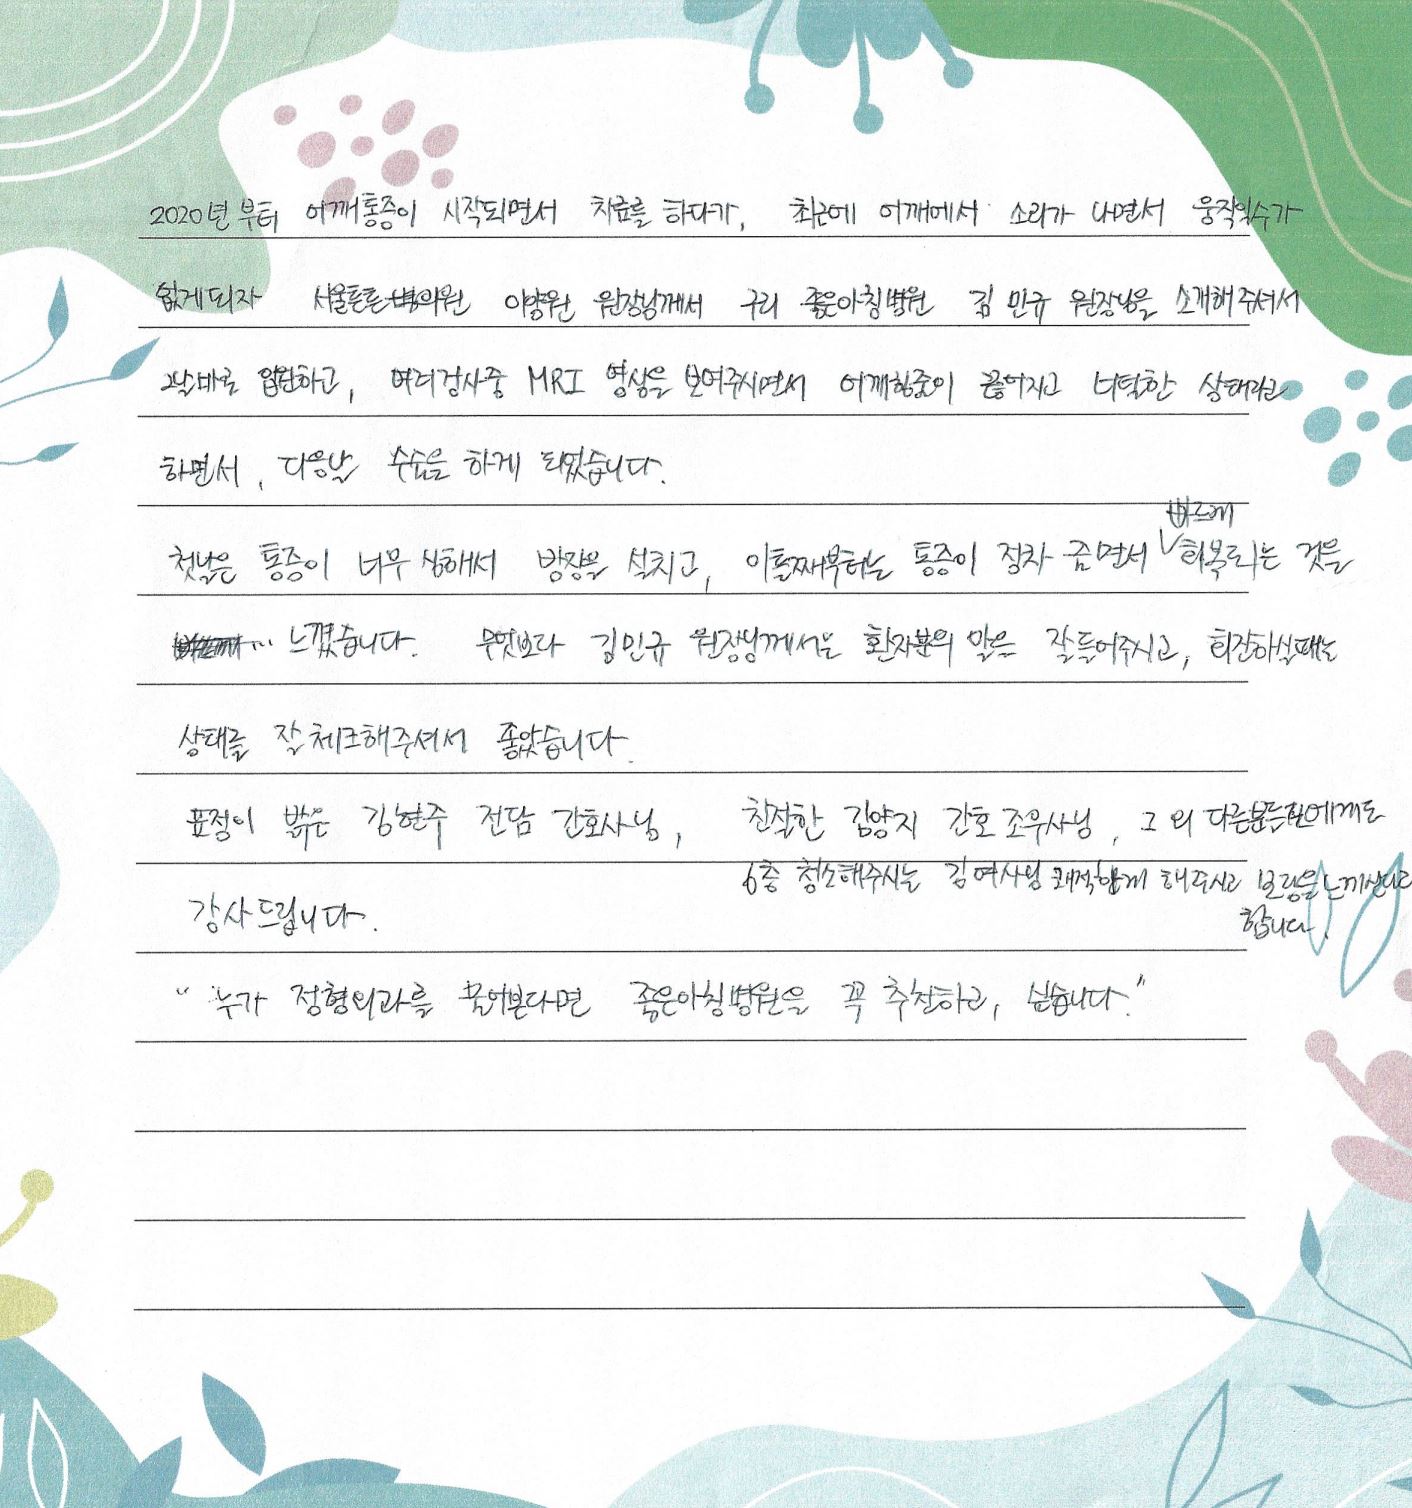 2020년 부터 어깨통증이 시작되면서 치료를 하다가, 최근에 어깨에서 소리가 나면서 움직일수가
없게되자 서울튼튼의원 이양원 원장님께서 구리 좋은아침병원 김민규 원장님을 소개해주셔서
그날바로 입원하고, 여러검사중 MRI 영상을 보여주시면서 어깨힘줄이 끊어지고 너덜한 상태라고
하면서, 다음날 수술을 하게 되었습니다.
첫날은 통증이 너무 심해서 밤잠을 설치고, 이틀째부터는 통증이 점차 줄면서 빠르게 회복되는 것을
느꼈습니다. 무엇보다 김민규 원장님께서는 환자분의 말을 잘들어주시고, 회진하실때는
상태를 잘 체크해주셔서 좋았습니다.
표정이 밝은 김현주 전담 간호사님, 친절한 김양지 간호조무사님, 그 외 다른분들한에게도
6층 청소해주시는 김여사님 쾌적하게 해주시고 보람을 느끼신다고
합니다.
감사드립니다.
"누가 정형외과를 물어본다면 좋은아침병원을 꼭 추천하고, 싶습니다."